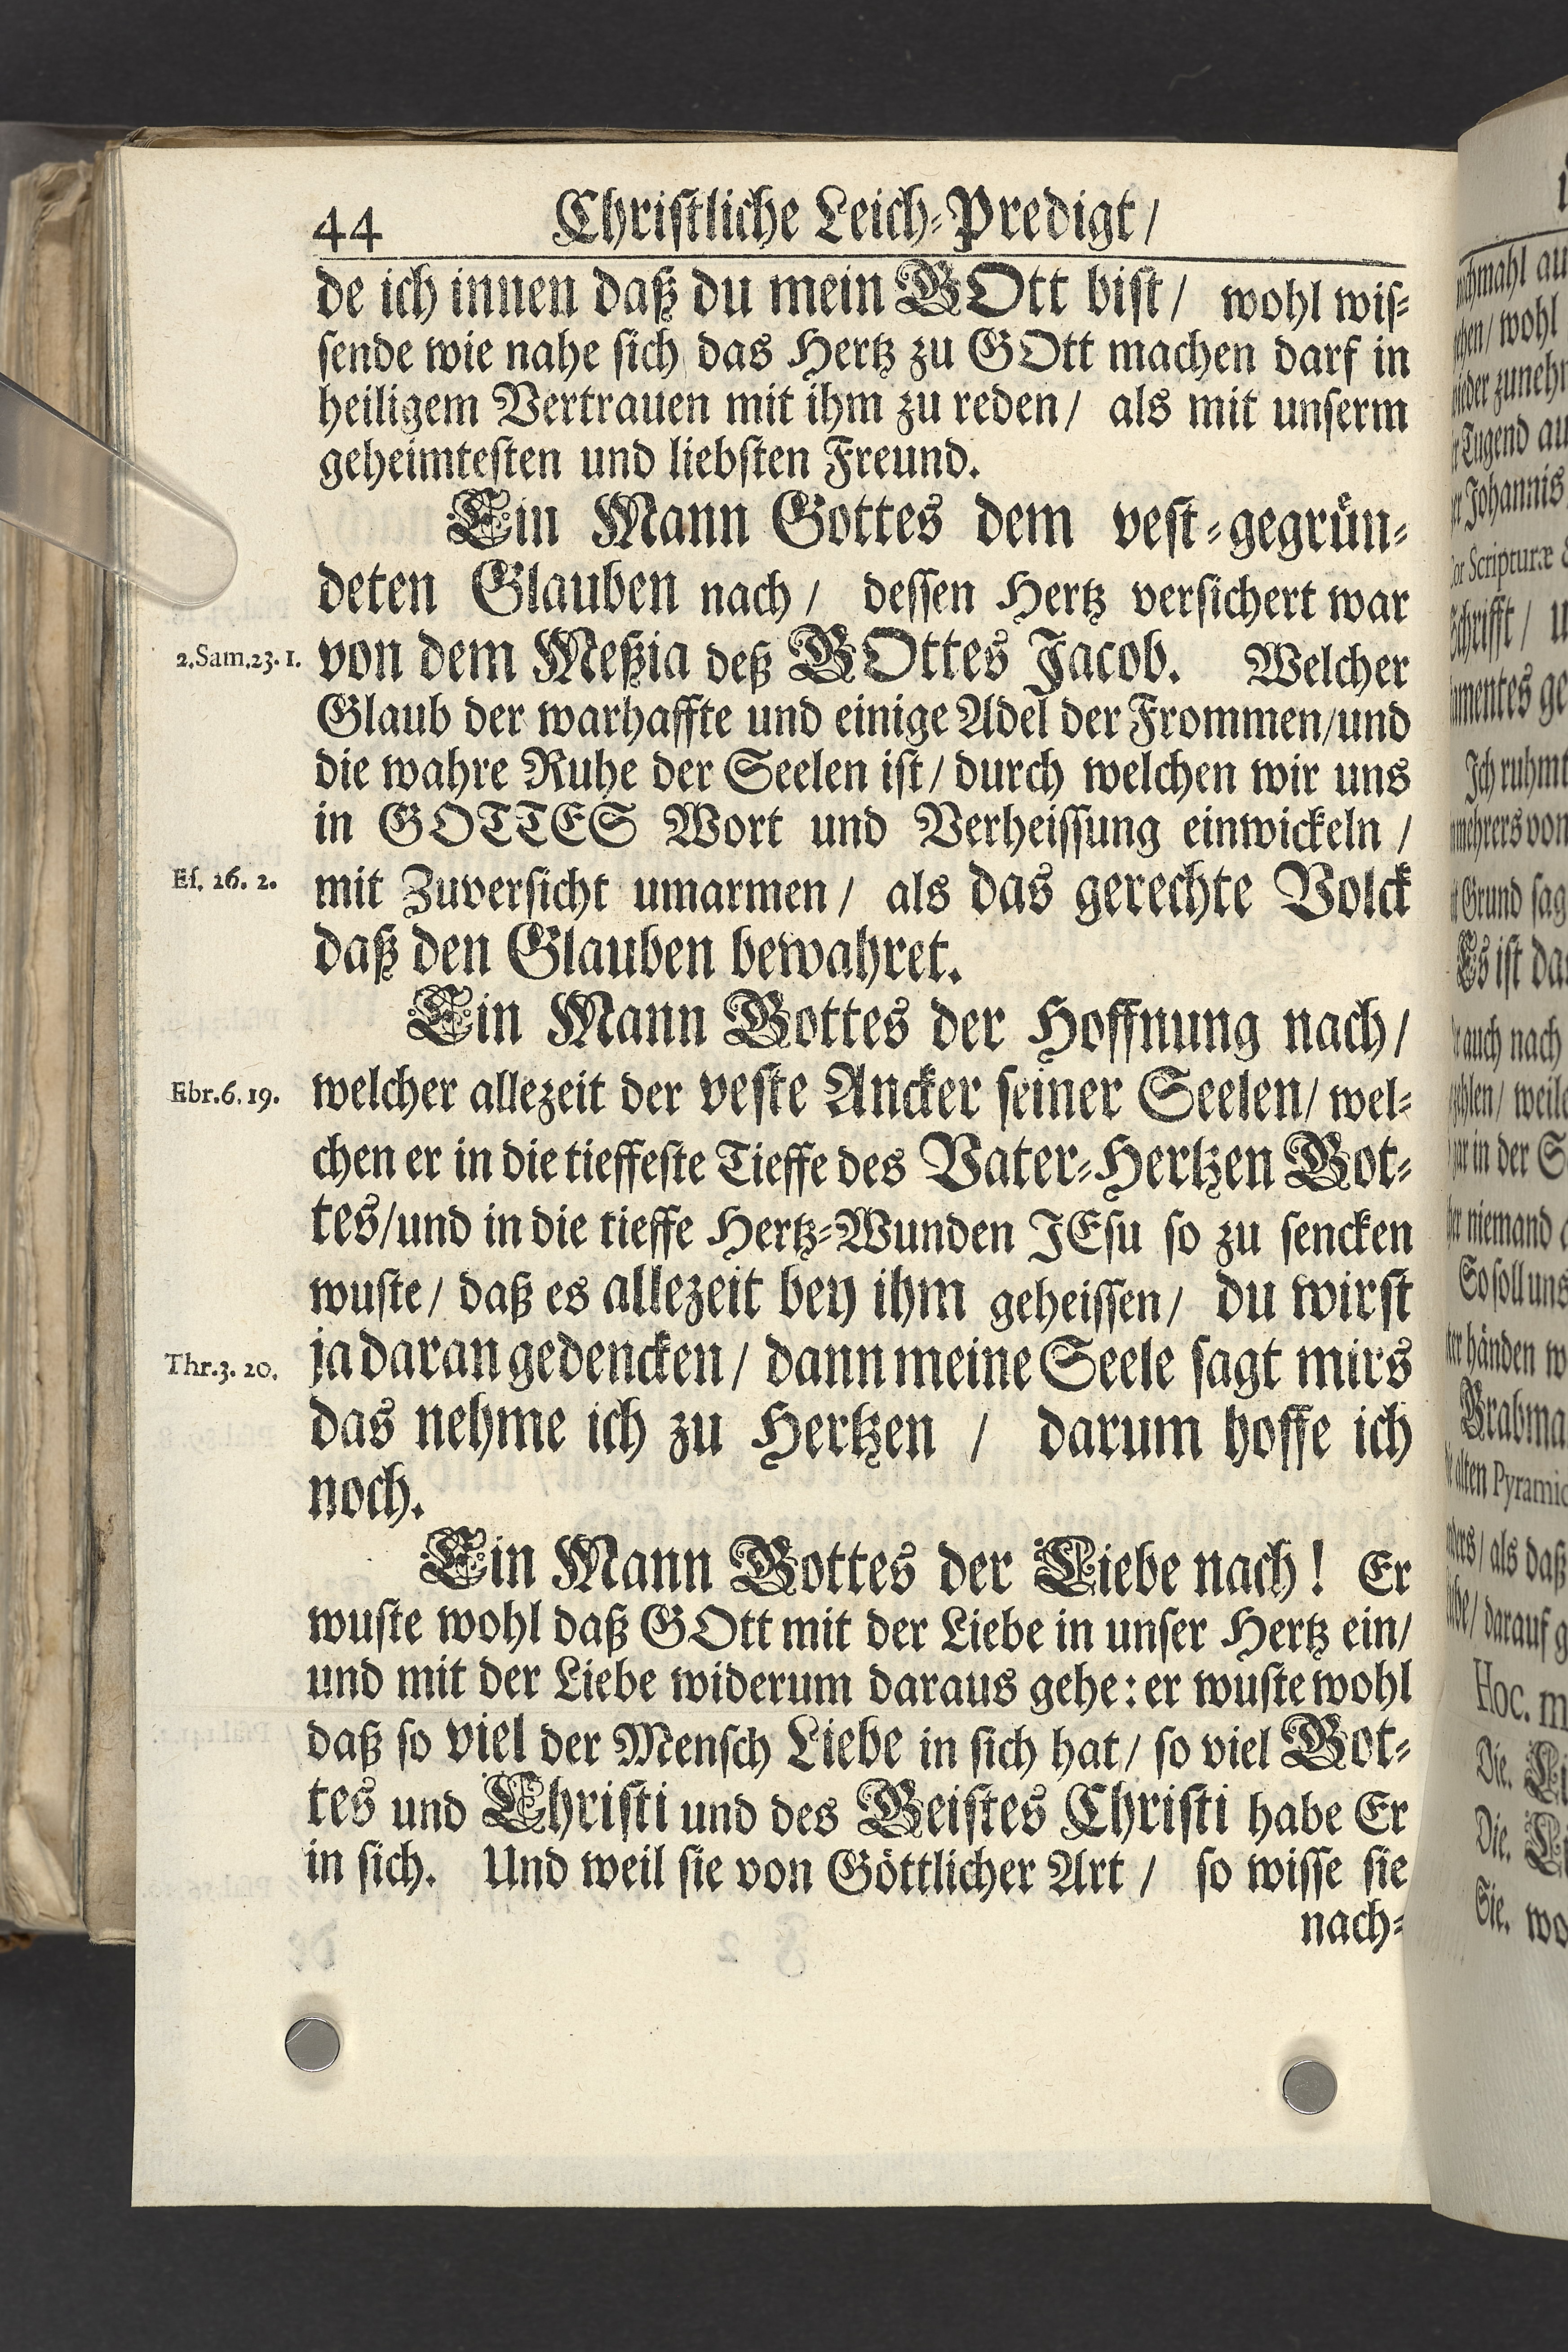 44 Christliche Leich-Predigt/
de ich innen daß du mein GOtt bist/ wohl wis-
sende wie nahe sich das Hertz zu GOtt machen darf in
heiligem Vertrauen mit ihm zu reden/ als mit unserm
geheimtesten und liebsten Freund.
Ein Mann Gottes dem vest-gegrün-
deten Glauben nach/ dessen Hertz versichert war
2.Sam.23.1. von dem Meßia deß GOttes Jacob. Welcher
Glaub der warhaffte und einige Adel der Frommen/und
die wahre Ruhe der Seelen ist/ durch welchen wir uns
in GOTTES Wort und Verheissung einwickeln/
Es. 26. 2. mit Zuversicht umarmen/ als das gerechte Volck
daß den Glauben bewahret.
Ein Mann Gottes der Hoffnung nach/
Ebr.6.19. welcher allezeit der veste Ancker seiner Seelen/ wel-
chen er in die tieffeste Tieffe des Vater-Hertzen Got-
tes/und in die tieffe Hertz-Wunden JEsu so zu sencken
wuste/ daß es allezeit bey ihm geheissen/ du wirst
Thr.3. 20. ja daran gedencken/ dann meine Seele sagt mirs
das nehme ich zu Hertzen / darum hoffe ich
noch.
Ein Mann Gottes der Liebe nach! Er
wuste wohl daß GOtt mit der Liebe in unser Hertz ein/
und mit der Liebe widerum daraus gehe: er wuste wohl
daß so viel der Mensch Liebe in sich hat/ so viel Got-
tes und Christi und des Geistes Christi habe Er
in sich. Und weil sie von Göttlicher Art/ so wisse sie
nach-
wohl
Tugend
Johannis
Scripturæ
Ich
Grund
Es ist
auch nach
in der
niemand
So soll uns
händen
alten
als daß
darauf
Hoc.
Die.
Die.
Sie.